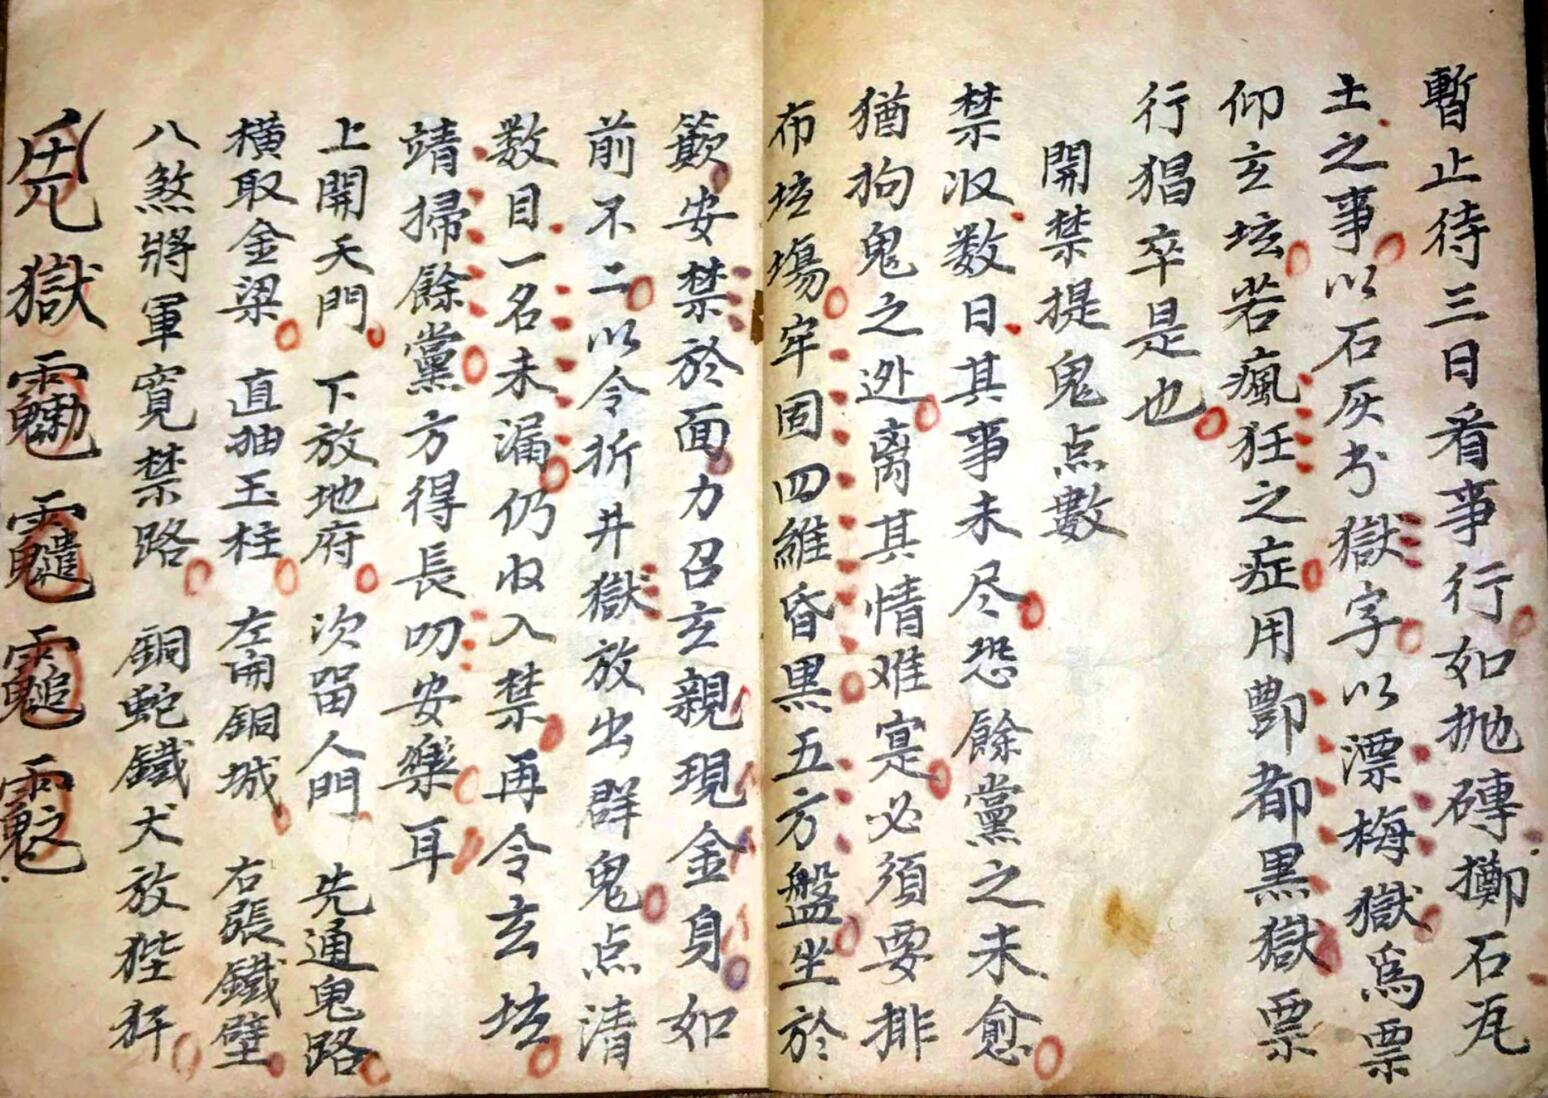 暫止待三日看事行如拋磚擲石瓦
土之事以石灰书獄字以漂梅獄爲票
仰玄坛若瘋狂之症用酆都黑獄票
行猖卒是也
開禁提鬼点數
禁收数日其事未尽恐餘黨之未愈
猶狗鬼之迯离其情难寔必须要排
布坛塲牢固四維昏黑五方盤坐於
籨安禁於面力召玄親現金身如
前不二以令折井獄放出群鬼点清
数目一名未漏仍收入禁再令玄坛
靖掃餘黨方得長叨安樂耳
上開天門 下放地府 次留人門 先通鬼路
橫取金梁 直抽玉柱 左開銅城 右張鐵壁
八煞將軍寬禁路 銅蛇鐵犬放狴犴
獄